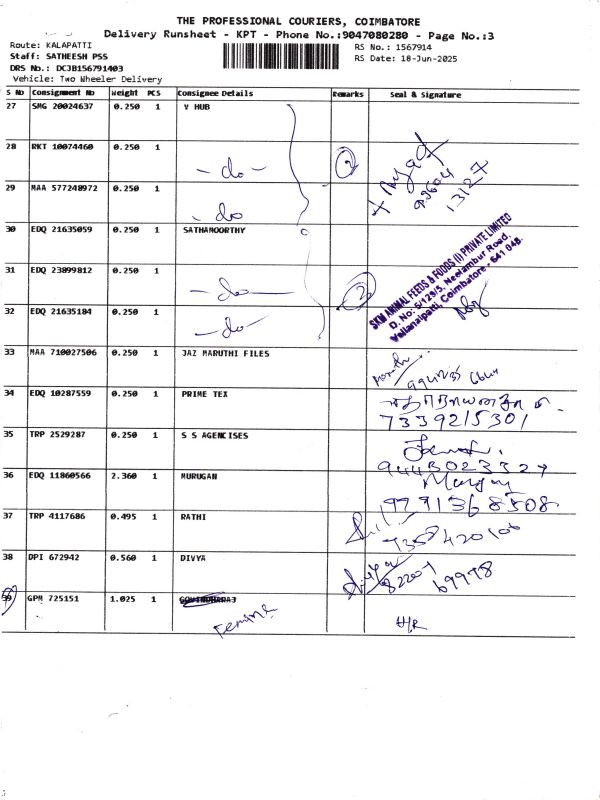 THE PROFESSIONAL COURIERS, COIMBATORE
Delivery Runsheet - KPT - Phone No.:9047080280 - Page No.:3
Route: KALAPATTI
RS No.: 1567914
Staff: SATHEESH PSS
RS Date: 18-Jun-2025
DRS No.: DCJB156791403
Vehicle: Two Wheeler Delivery
S No Consignment No Weight PCS Consignee Details Remarks Seal & Signature
27 SMG 20024637 0.250 1 V HUB
28 RKT 10074460 0.250 1
- do - 2
29 MAA 577248972 0.250 1
- do
30 EDQ 21635059 0.250 1 SATHAMOORTHY
31 EDQ 23899812 0.250 1
- do - 2
SKM ANIMAL FEEDS & FOODS (I) PRIVATE LIMITED
D. No: 5/129/5, Neelambur Road,
Vellanaipatti, Coimbatore - 641 048.
32 EDQ 21635184 0.250 1
- do -
33 MAA 710027506 0.250 1 JAZ MARUTHI FILES
34 EDQ 10287559 0.250 1 PRIME TEX
7339215301
35 TRP 2529287 0.250 1 S S AGENCISES
9443023327
36 EDQ 11860566 2.360 1 MURUGAN
Murugan
9791368508
37 TRP 4117686 0.495 1 RATHI
7358420106
38 DPI 672942 0.560 1 DIVYA
82207 69978
39 GPM 725151 1.025 1 GOVINDHARAJ
Femina
H/R